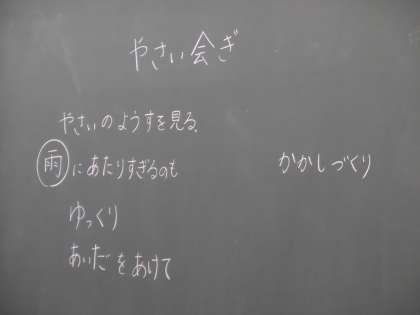 やさい会ぎ
やさいのようすを見る
雨にあたりすぎるのも
かかしづくり
ゆっくり
あいだをあけて